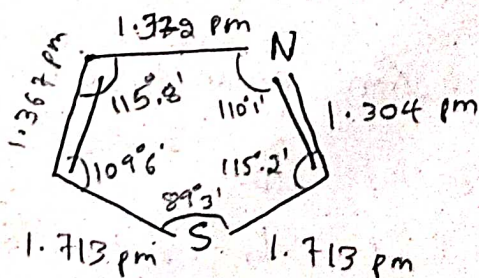 1.372 pm
N
1.367 pm
115°.8'
110°1'
1.304 pm
109°6'
115°.2'
89°3'
1.713 pm
S
1.713 pm